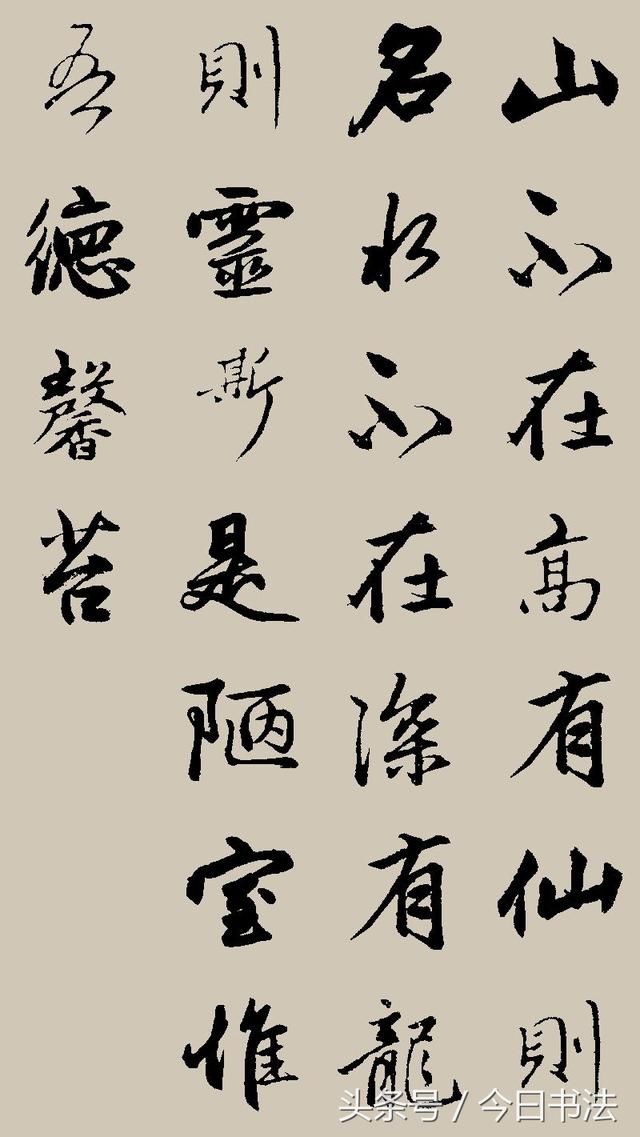 山不在高有仙則
名水不在深有龍
則靈斯是陋室惟
吾德馨苔
头条号 / 今日书法